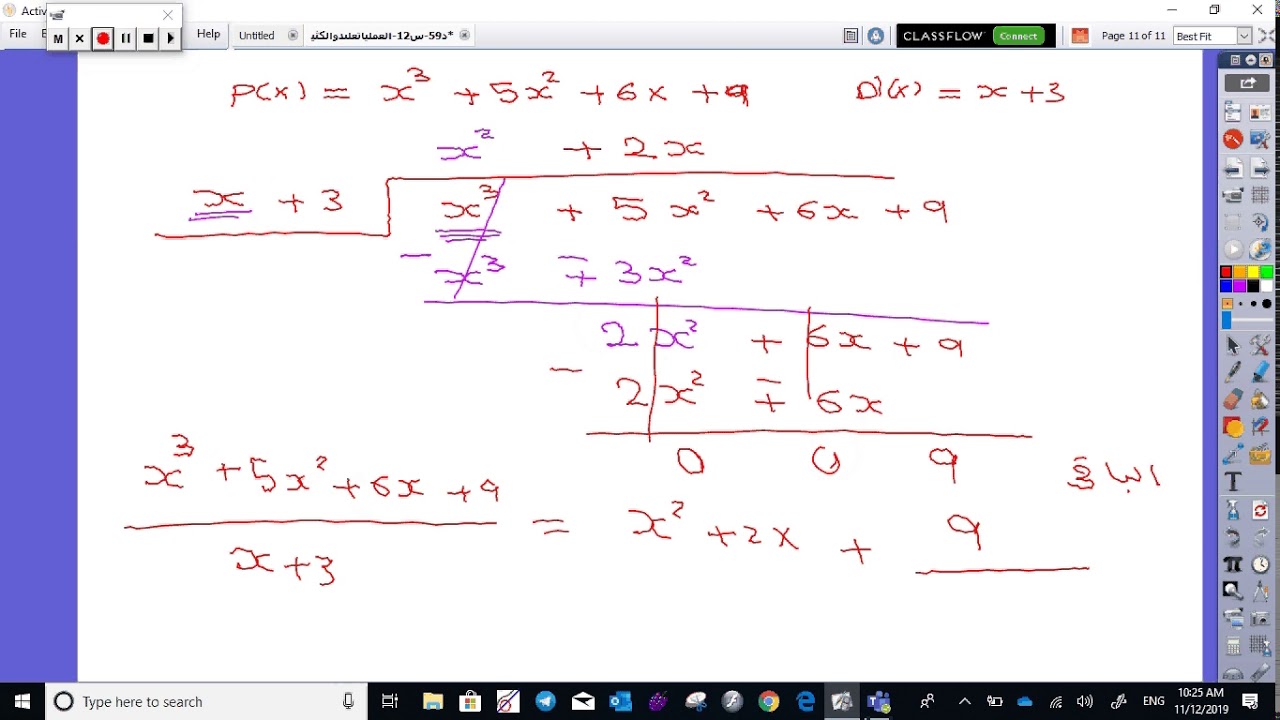 Activ
File
Help
Untitled
د59-س12-العملياتعلىدوالكثي*
CLASSFLOW Connect
Page 11 of 11
Best Fit
P(x) = x³ + 5x² + 6x + 9 D(x) = x + 3
x² + 2x
x + 3 x³ + 5x² + 6x + 9
− x³ ∓ 3x²
2x² + 6x + 9
− 2x² ∓ 6x
0 0 9 الباقي
x³ + 5x² + 6x + 9
x + 3
= x² + 2x + 9
Type here to search
ENG
10:25 AM
11/12/2019